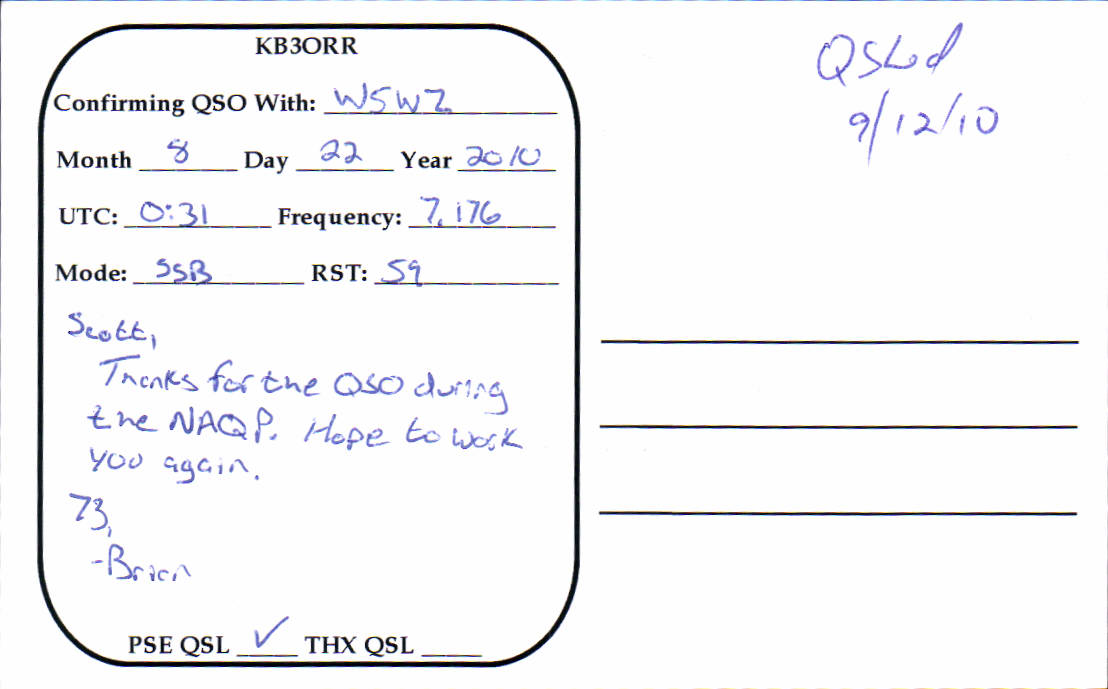 KB3ORR
Confirming QSO With: W5WZ
Month 8 Day 22 Year 2010
UTC: 0:31 Frequency: 7.176
Mode: SSB RST: 59
Scott,
Thanks for the QSO during
the NAQP. Hope to work
you again.
73,
-Brian
PSE QSL ✓ THX QSL
QSLed
9/12/10